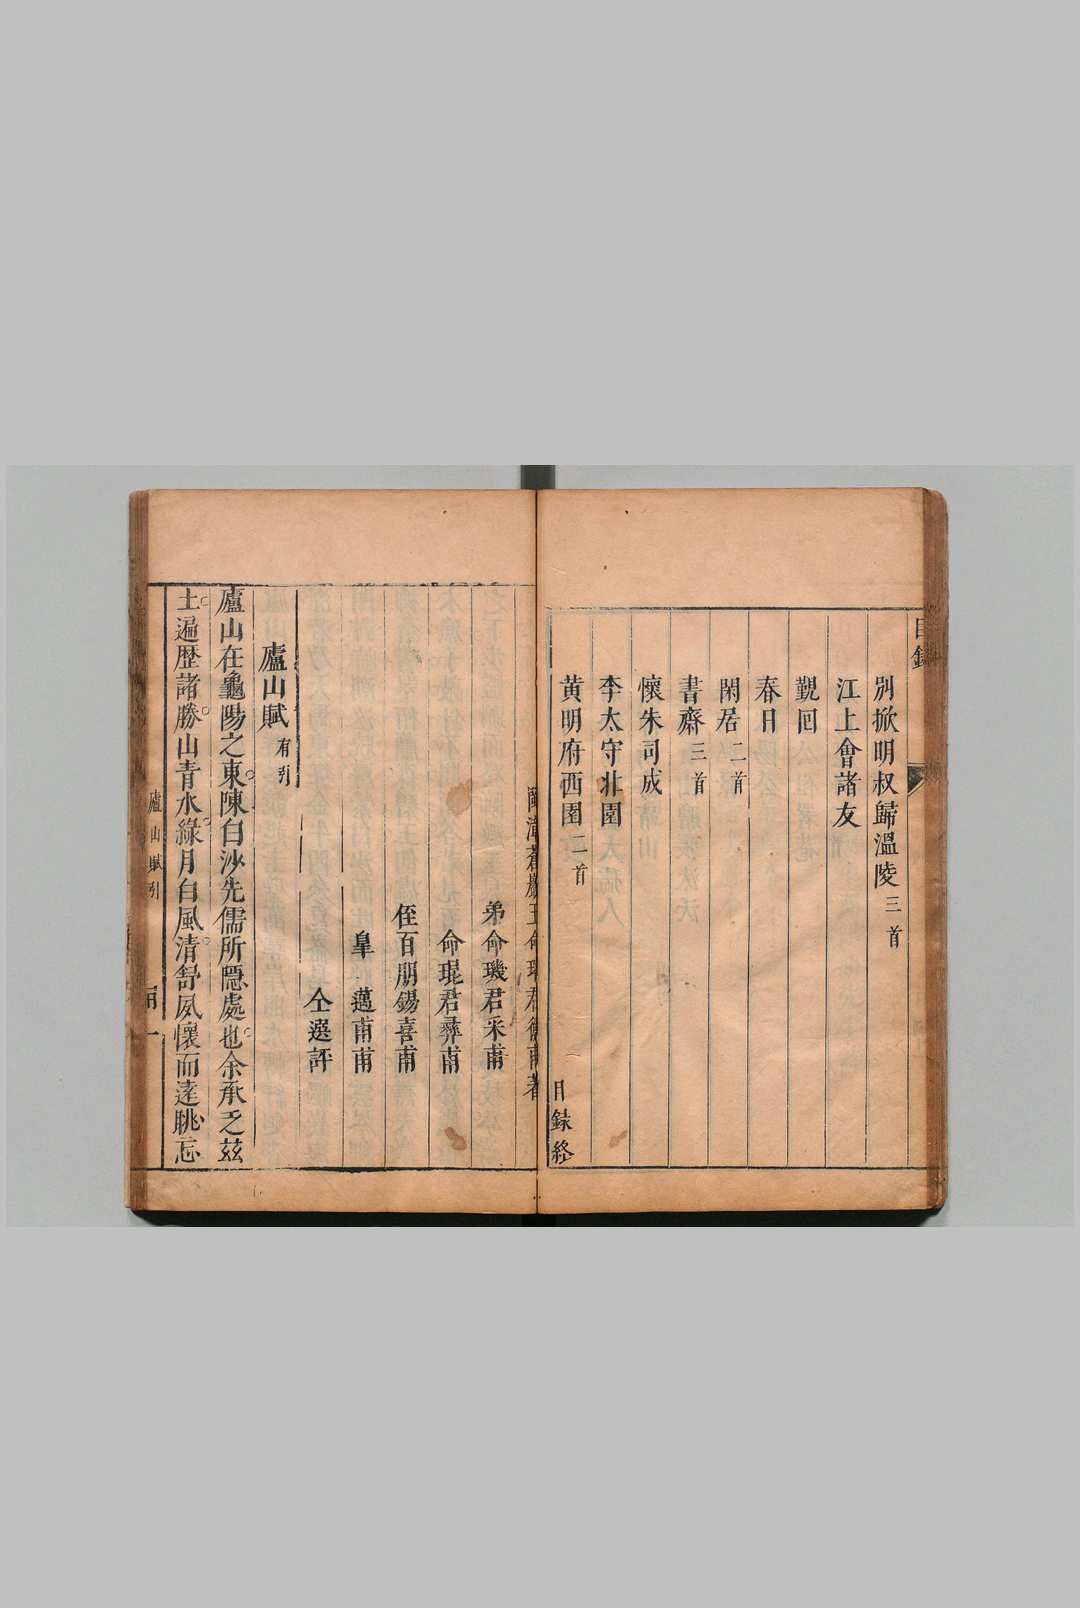 目錄
別掀明叔歸溫陵三首
江上會諸友
覲回
春日
閑居二首
書齋三首
懷朱司成
李太守北園
黃明府西園二首
目錄終
閩漳蒼巖王命璿君衡甫著
弟命璣君采甫
命琨君彝甫
侄百朋錫喜甫
皐邁甫甫
仝選評
廬山賦有引
廬山在龜陽之東陳白沙先儒所隱處也余承乏茲
土遍歷諸勝山青水綠月白風清舒夙懷而遠眺忘
廬山賦引
一